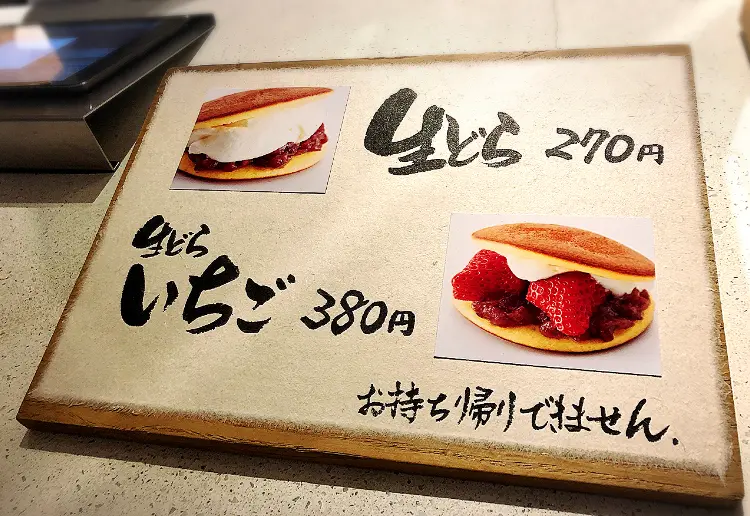 生どら 270円
生どら
いちご 380円
お持ち帰りできません.